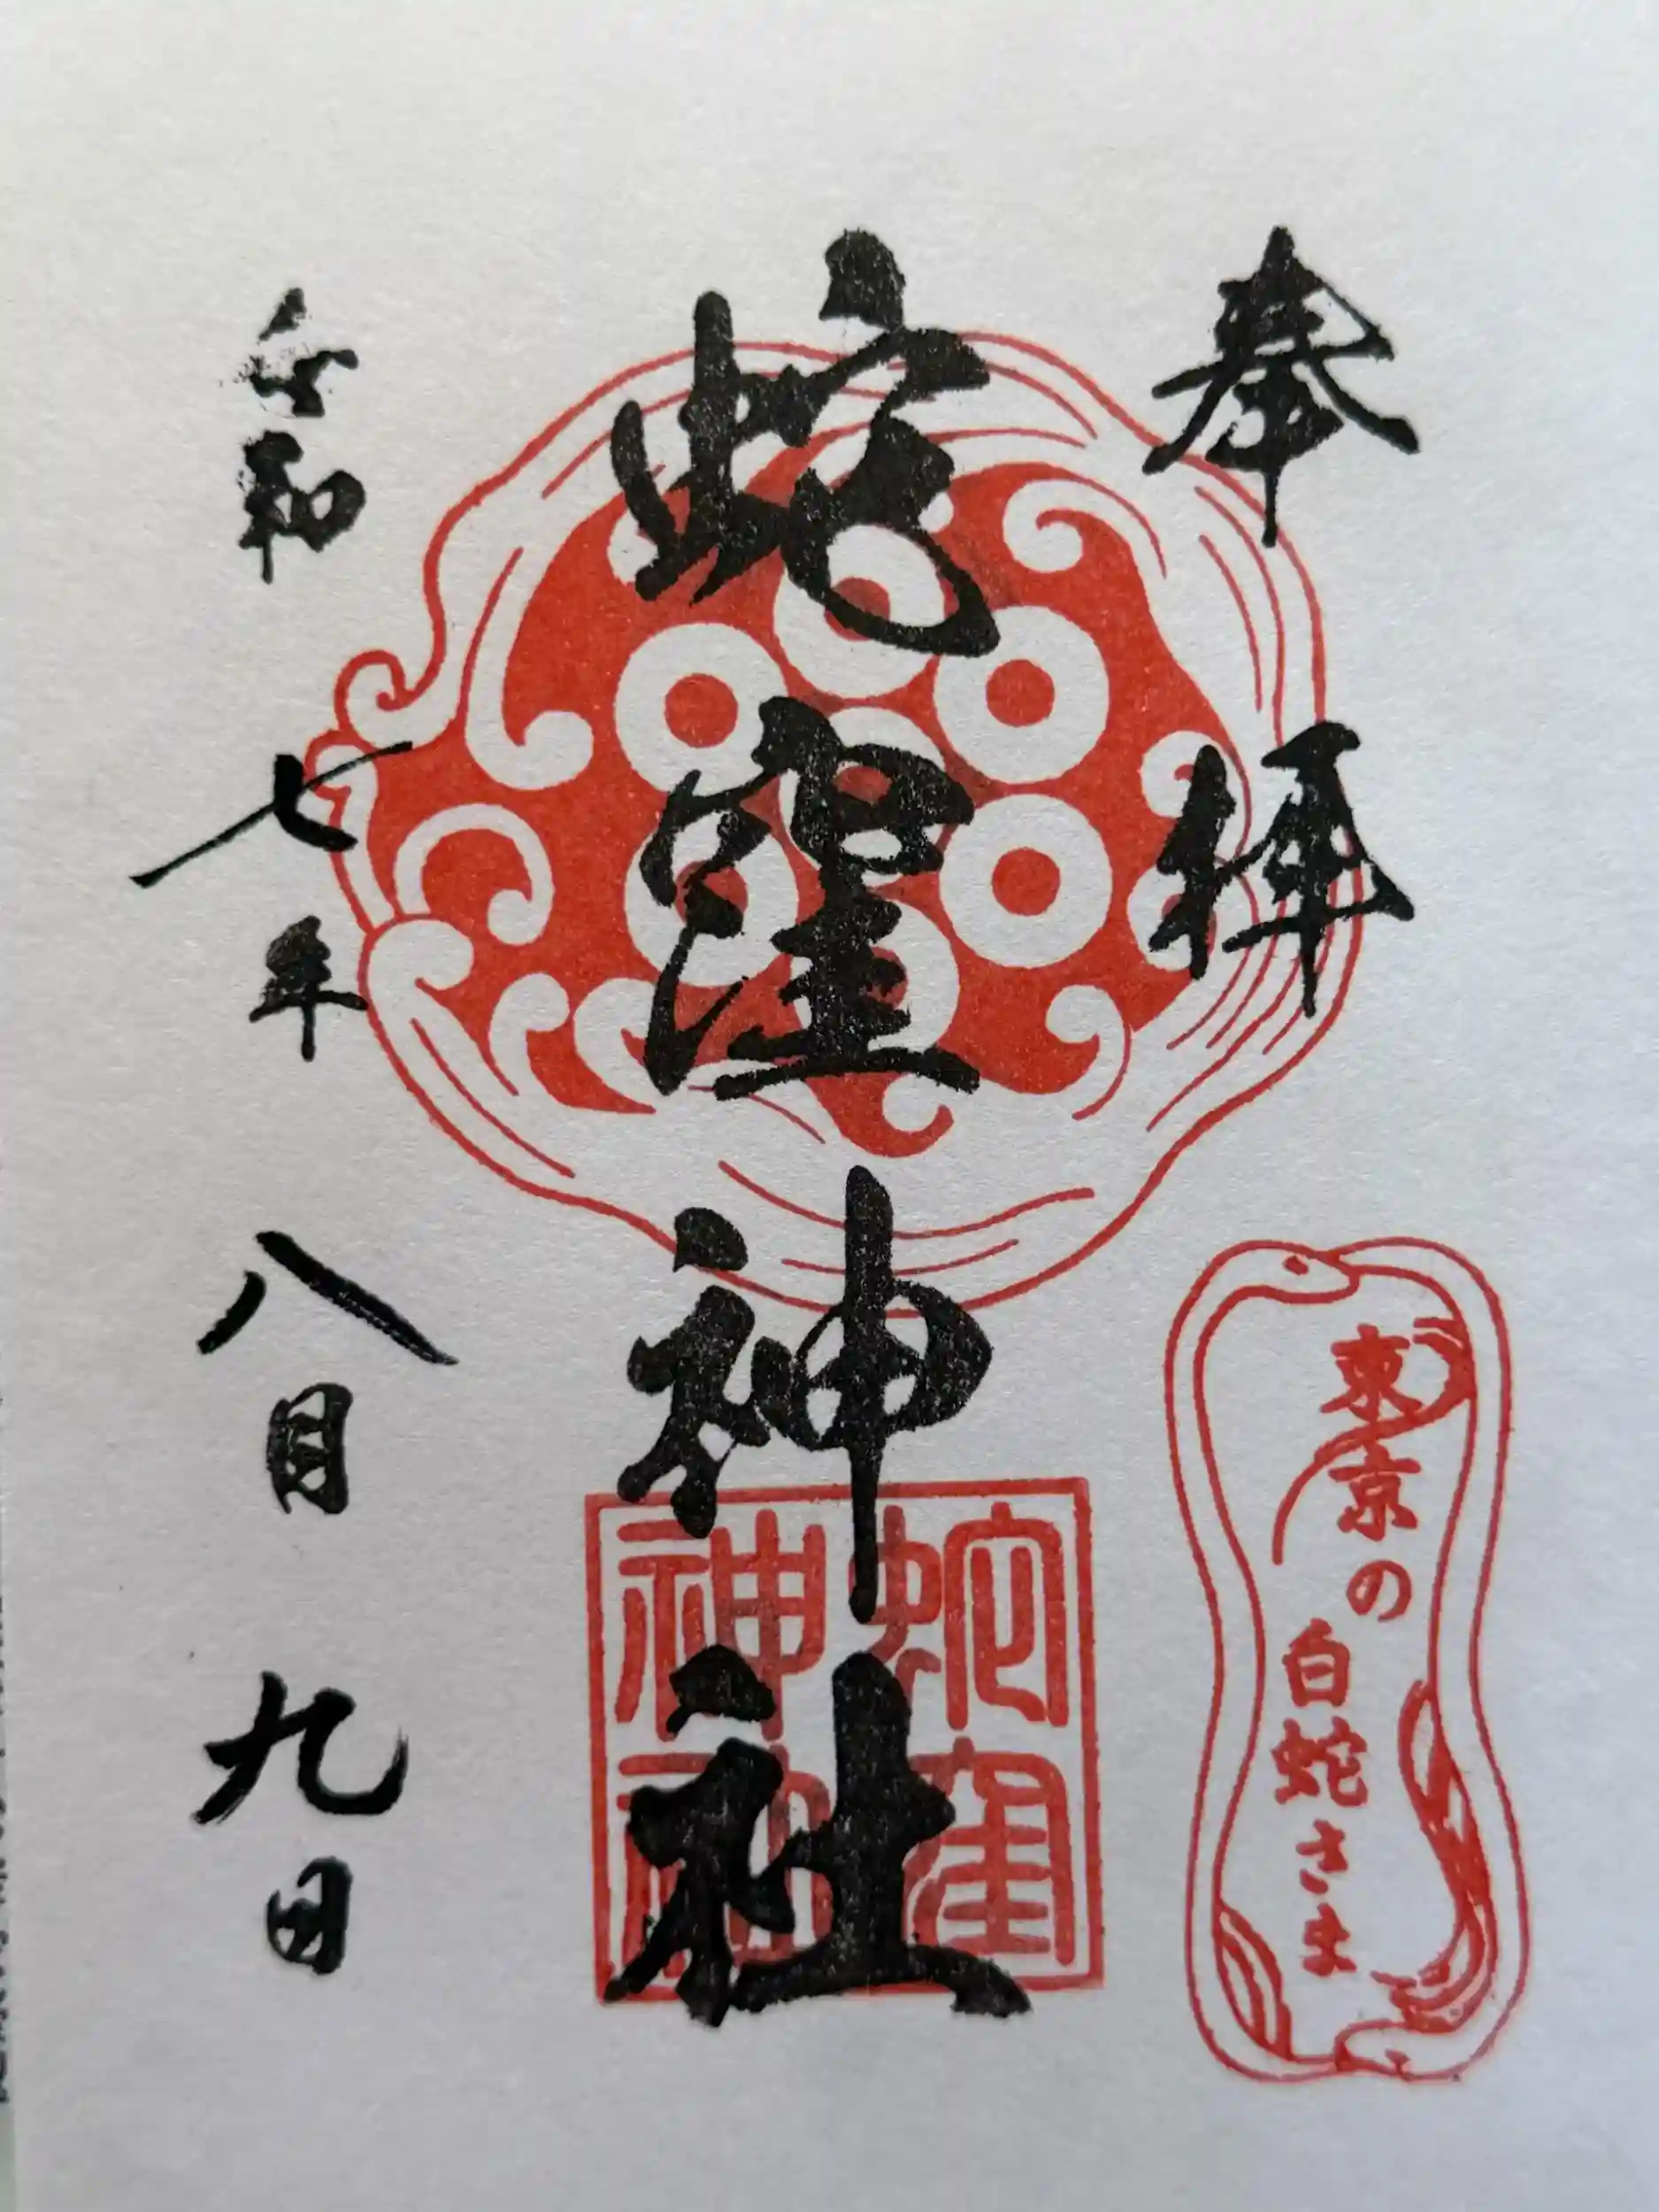 奉拝
東京の
白蛇さま
蛇窪神社
蛇窪
神社
令和七年八月九日